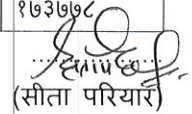 १७३७७८
(सीता परियार)